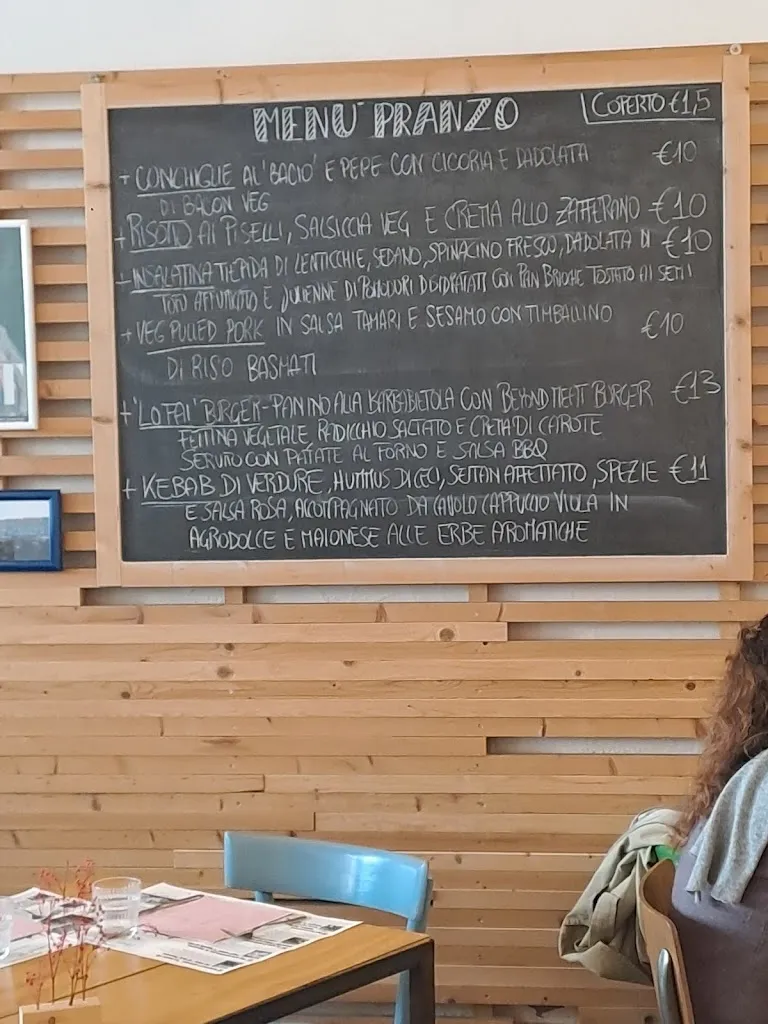 MENU' PRANZO
COPERTO €1,5
+ CONCHIGLIE AL 'BACIO' E PEPE CON CICORIA E DADOLATA €10
DI BACON VEG
+ RISOTTO AI PISELLI, SALSICCIA VEG E CREMA ALLO ZAFFERANO €10
+ INSALATINA TIEPIDA DI LENTICCHIE, SEDANO, SPINACINO FRESCO, DADOLATA DI €10
TOFU AFFUMICATO E JULIENNE DI POMODORI DISIDRATATI CON PAN BRIOCHE TOSTATO AI SEMI
+ VEG PULLED PORK IN SALSA TAMARI E SESAMO CON TIMBALLINO €10
DI RISO BASMATI
+ 'LO FAI' BURGER - PANINO ALLA BARBABIETOLA CON BEYOND MEAT BURGER €13
FETTINA VEGETALE RADICCHIO SALTATO E CREMA DI CAROTE
SERVITO CON PATATE AL FORNO E SALSA BBQ
+ KEBAB DI VERDURE, HUMMUS DI CECI, SEITAN AFFETTATO, SPEZIE €11
E SALSA ROSA, ACCOMPAGNATO DA CAVOLO CAPPUCCIO VIOLA IN
AGRODOLCE E MAIONESE ALLE ERBE AROMATICHE